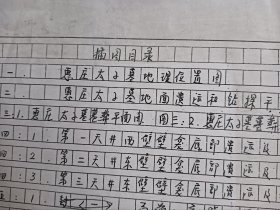 插图目录
一. 惠庄太子墓地理位置图
二. 惠庄太子墓地面遗迹和钻探平
三:1. 惠庄太子墓墓葬平面图 图三:2. 惠庄太子墓墓葬
四:1 第一天井西壁壁龛底部遗迹及
四:2 第二天井东壁壁龛底部遗迹及
四:3 第三天井东壁壁龛底部遗迹及
五:1 封<一>